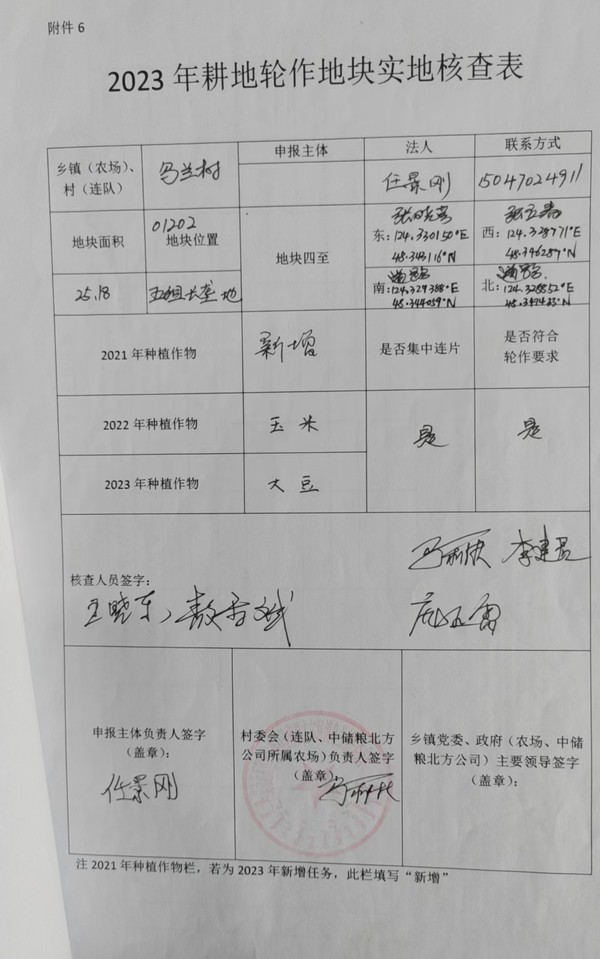 附件 6
2023 年耕地轮作地块实地核查表
乡镇（农场）、
村（连队）
乌兰村
申报主体
法人
联系方式
任景刚
15047024911
地块面积
01202
地块位置
地块四至
东：124.330150°E
48.343116°N
西：124.328771°E
48.346287°N
25.18
五组长垄地
南：124.329388°E
48.344059°N
北：124.328852°E
2021 年种植作物
新增
是否集中连片
是否符合
轮作要求
2022 年种植作物
玉米
是
是
2023 年种植作物
大豆
核查人员签字：
王晓东、
申报主体负责人签字
（盖章）：
任景刚
村委会（连队、中储粮北方
公司所属农场）负责人签字
（盖章）：
乡镇党委、政府（农场、中储
粮北方公司）主要领导签字
（盖章）：
注 2021 年种植作物栏，若为 2023 年新增任务，此栏填写“新增”